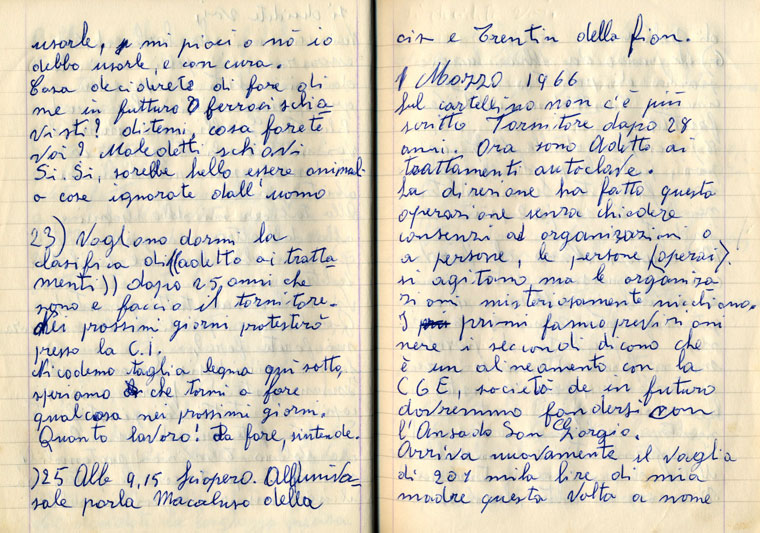 usarle, mi piaci o nò io
debbo usarle, e con cura.
Cosa deciderete di fare di
me in futturo O ferroci schia
visti? ditemi, cosa farete
voi? Maledetti schiavi
Si. Si, sarebbe bello essere animali
o cose ignorate dall'uomo
23) Vogliono darmi la
clasifica di ((adetto ai tratta
menti)) dapo 25, anni che
sono e faccio il tornitore.
Nei prossimi giorni protesterò
presso la C.I.
Nicodemo taglia legna quì sotto,
speriamo che torni a fare
qualcosa nei prossimi giorni.
Quanto lavoro! Da fare, sintende.
)25 Alle 9,15 Sciopero. All'univa-
sale parla Macaluso della
cisn e Trentin della fiom.
1 Marzo 1966
Sul cartellino non c'è più
scritto Tornitore dapo 28
anni. Ora sono Adetto ai
trattamenti autoclave.
La direzione ha fatto questa
operazione senza chiedere
consenzi ad organizazioni o
a persone, le persone (operai).
si agitano, ma le organiza
zioni misteriosamente nicchiano.
I primi fanno previsioni
nere i secondi dicono che
è un alineamento con la
CGE, società che in futuro
dovremmo fondersi con
l'Ansado San Giorgio.
Arriva nuovamente il vaglia
di 201 mila lire di mia
madre questa volta a nome